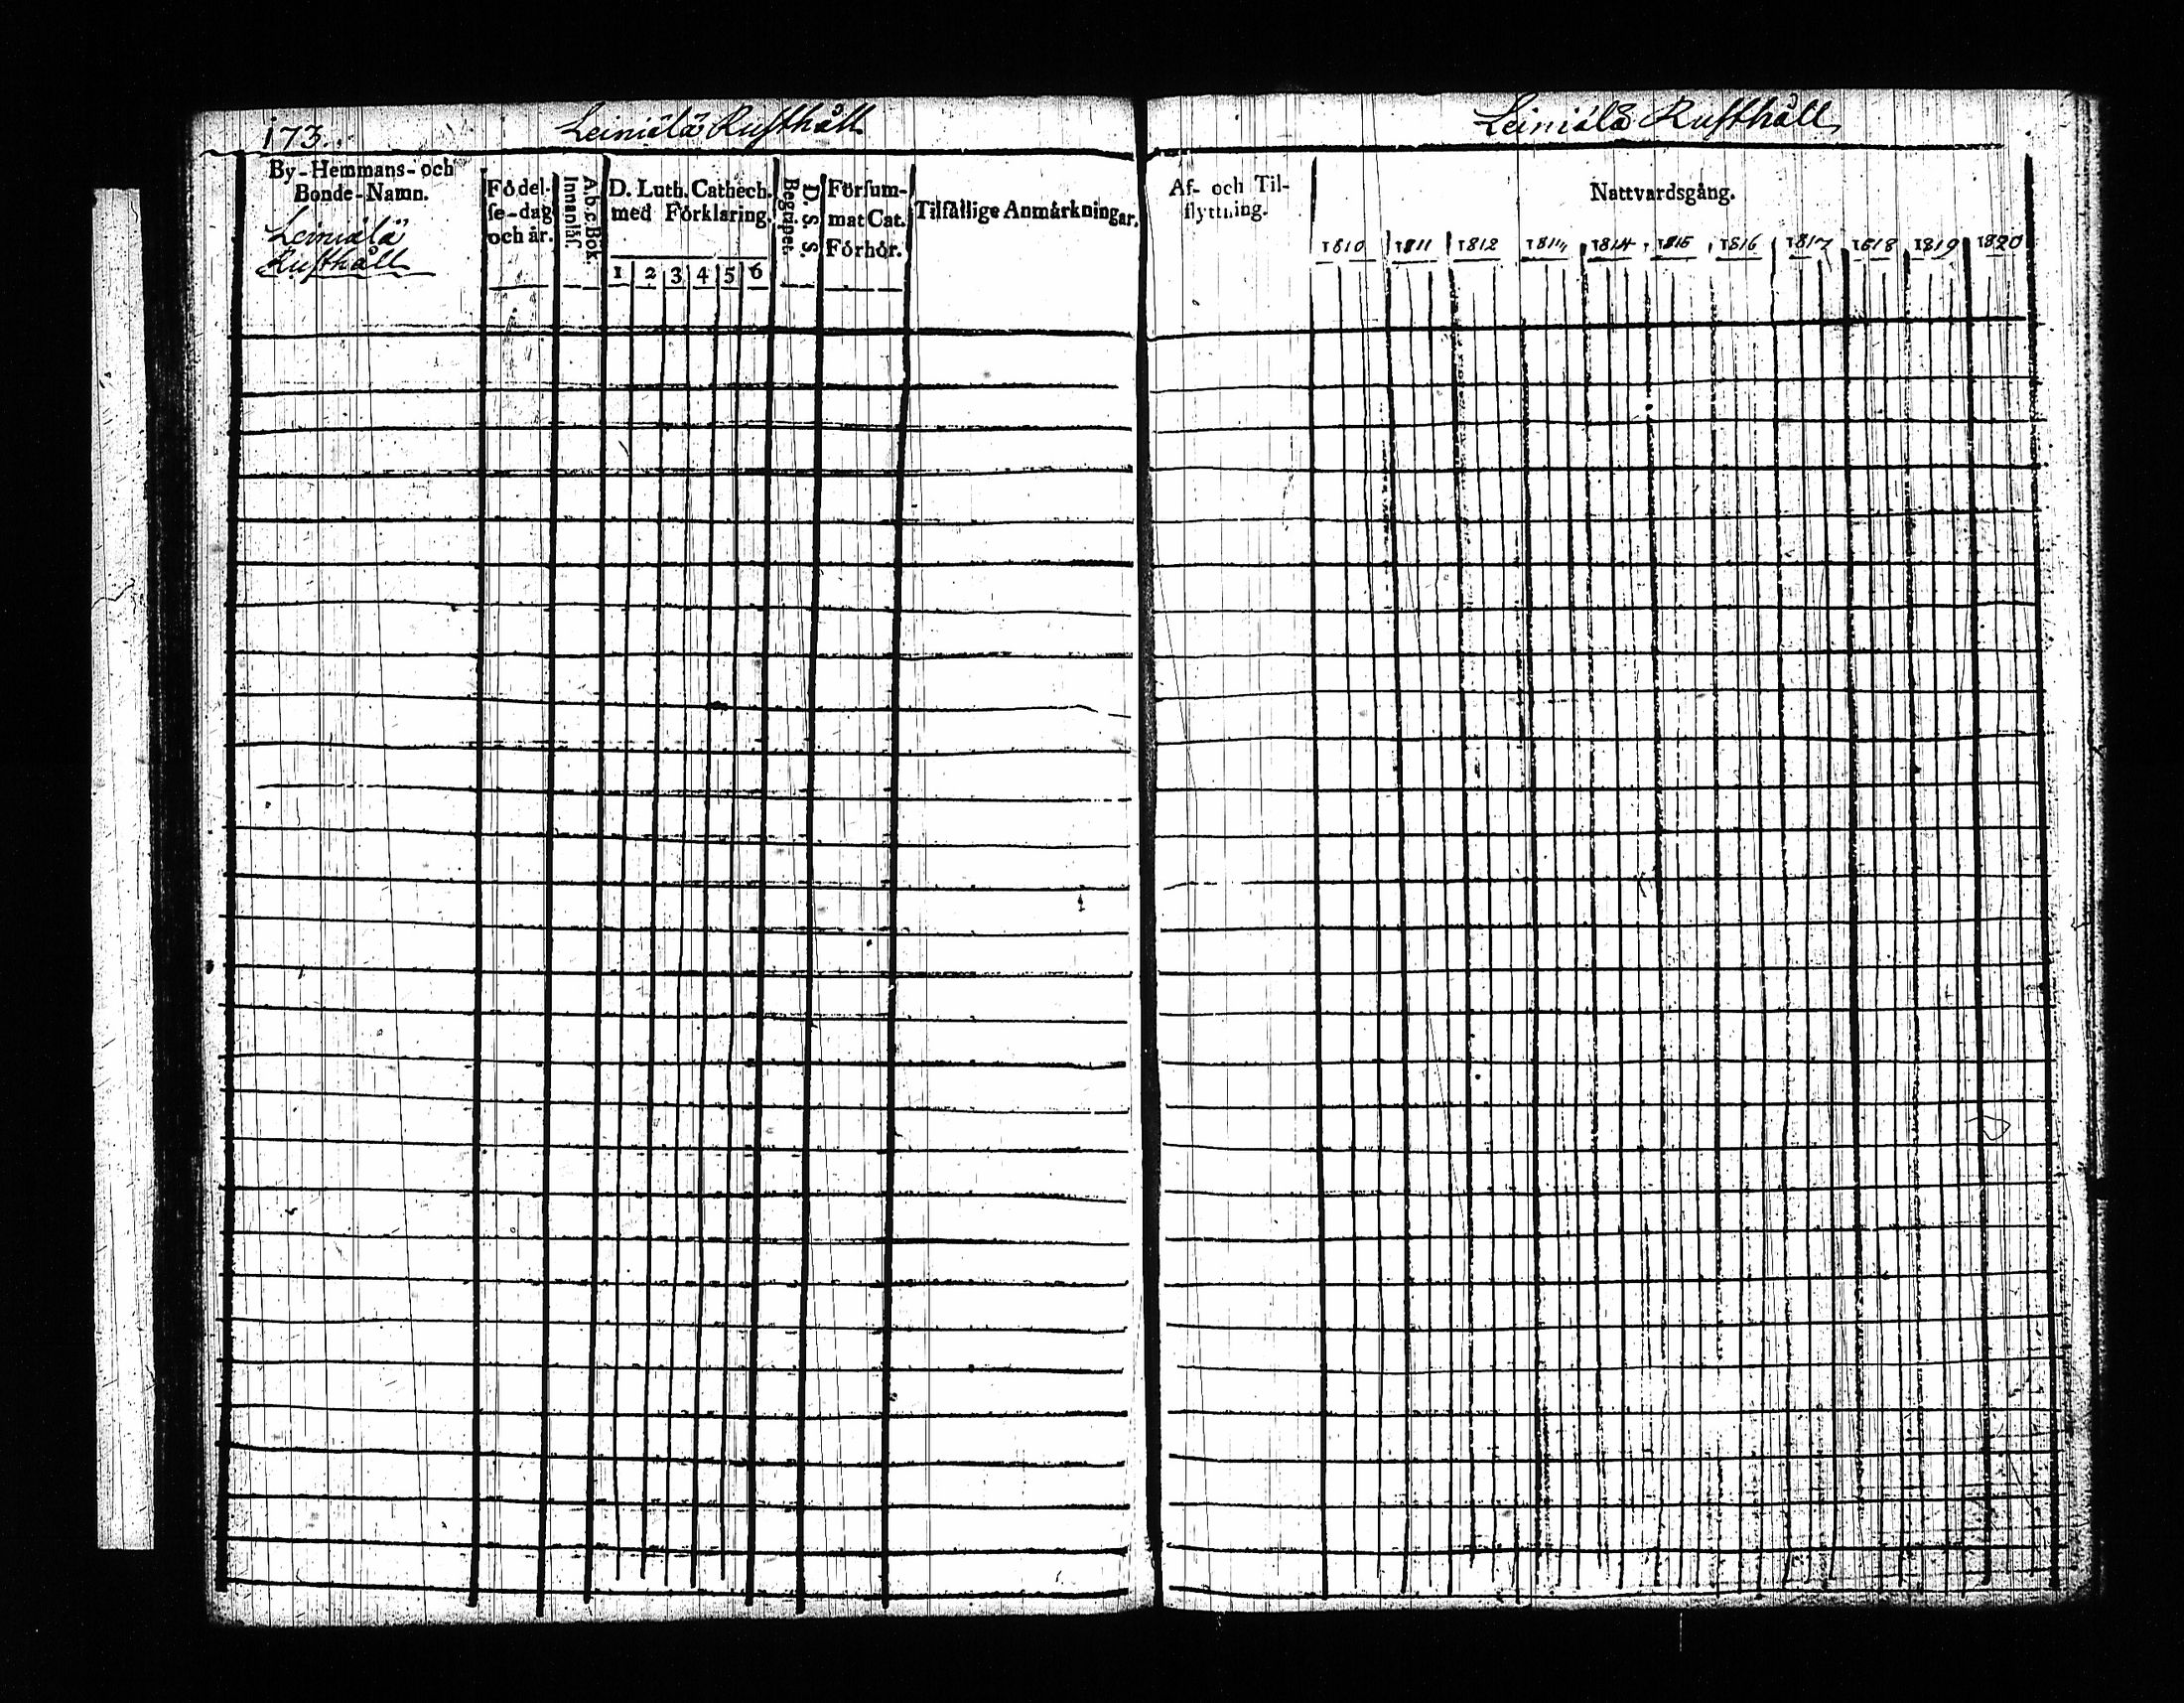 173.
Leiniälä Rusthåll
Leiniälä Rusthåll
By-Hemmans- och
Bonde-Namn.
Leiniälä
Rusthåll
Födel-
ſe-dag
och år.
A.b.c. Bok.
Innanläſ.
D. Luth. Cathech.
med Förklaring.
1 2 3 4 5 6
D. S. S.
Begripet.
Förſum-
mat Cat.
Förhör.
Tilfällige Anmärkningar.
Af- och Til-
flyttning.
Nattvardsgång.
1810 1811 1812 1814 1815 1816 1817 1818 1819 1820